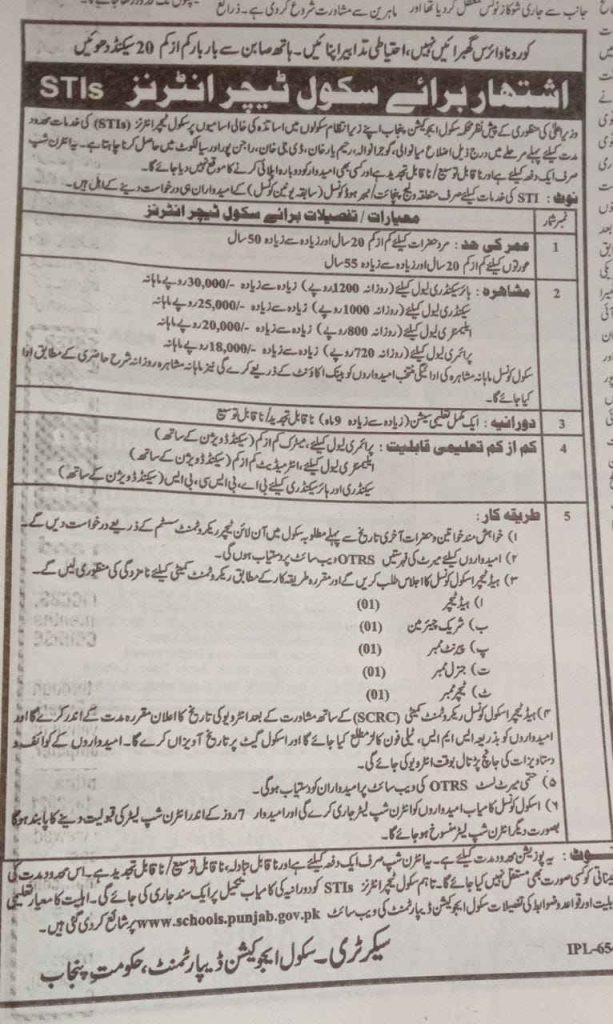 جانب سے جاری شوکاز نوٹس معطل کر دیا تھا اور ماہرین سے مشاورت شروع کر دی ہے۔ ذرائع
کورونا وائرس گھبرائیں نہیں، احتیاطی تدابیر اپنائیں۔ ہاتھ صابن سے بار بار کم از کم 20 سیکنڈ دھوئیں
اشتہار برائے سکول ٹیچر انٹرنز STIs
وزیراعلیٰ کی منظوری کے پیش نظر محکمہ سکول ایجوکیشن پنجاب اپنے زیر انتظام سکولوں میں اساتذہ کی خالی اسامیوں پر سکول ٹیچر انٹرنز (STIs) کی خدمات محدود
مدت کیلئے پہلے مرحلے میں درج ذیل اضلاع میانوالی، گوجرانوالہ، رحیم یار خان، ڈی جی خان، راجن پور اور سیالکوٹ میں حاصل کرنا چاہتا ہے۔ یہ انٹرن شپ
صرف ایک دفعہ کیلئے ہے اور ناقابل توسیع/ ناقابل تجدید ہے اور کسی بھی امیدوار کو دوبارہ اپلائی کرنے کا موقع نہیں دیا جائے گا۔
نوٹ : STI کی خدمات کیلئے صرف متعلقہ ویلج پنچائت/ نیبرہوڈ کونسل (سابقہ یونین کونسل) کے امیدواران ہی درخواست دینے کے اہل ہیں۔
نمبر شمار معیارات/ تفصیلات برائے سکول ٹیچر انٹرنز
1 عمر کی حد : مرد حضرات کیلئے کم از کم 20 سال اور زیادہ سے زیادہ 50 سال
عورتوں کیلئے کم از کم 20 سال اور زیادہ سے زیادہ 55 سال
2 مشاہرہ : ہائر سیکنڈری لیول کیلئے (روزانہ 1200 روپے) زیادہ سے زیادہ -/30,000 روپے ماہانہ
سیکنڈری لیول کیلئے (روزانہ 1000 روپے) زیادہ سے زیادہ -/25,000 روپے ماہانہ
ایلیمنٹری لیول کیلئے (روزانہ 800 روپے) زیادہ سے زیادہ -/20,000 روپے ماہانہ
پرائمری لیول کیلئے (روزانہ 720 روپے) زیادہ سے زیادہ -/18,000 روپے ماہانہ
سکول کونسل ماہانہ مشاہرہ کی ادائیگی منتخب امیدواروں کو بینک اکاؤنٹ کے ذریعے کرے گی نیز ماہانہ مشاہرہ روزانہ شرح حاضری کے مطابق ادا
کیا جائے گا۔
3 دورانیہ : ایک مکمل تعلیمی سیشن (زیادہ سے زیادہ 9 ماہ) ناقابل تجدید/ ناقابل توسیع
4 کم از کم تعلیمی قابلیت : پرائمری لیول کیلئے، میٹرک کم از کم (سیکنڈ ڈویژن کے ساتھ)
ایلیمنٹری لیول کیلئے، انٹرمیڈیٹ کم از کم (سیکنڈ ڈویژن کے ساتھ)
سیکنڈری اور ہائر سیکنڈری کیلئے بی اے، بی ایس سی، بی ایس (سیکنڈ ڈویژن کے ساتھ)
5 طریقہ کار :
۱) خواہش مند خواتین و حضرات آخری تاریخ سے پہلے مطلوبہ سکول میں آن لائن ٹیچر ریکروٹمنٹ سسٹم کے ذریعے درخواست دیں گے۔
۲) امیدواروں کیلئے میرٹ کی فہرستیں OTRS ویب سائٹ پر دستیاب ہوں گی۔
۳) ہیڈ ٹیچر اسکول کونسل کا اجلاس طلب کریں گے اور مقررہ طریقہ کار کے مطابق ریکروٹمنٹ کمیٹی کیلئے نامزدگی کی منظوری لیں گے۔
ا) ہیڈ ٹیچر (01)
ب) شریک چیئرمین (01)
پ) پیرنٹ ممبر (01)
ت) جنرل ممبر (01)
ٹ) ٹیچر ممبر (01)
۴) ہیڈ ٹیچر اسکول کونسل ریکروٹمنٹ کمیٹی (SCRC) کے ساتھ مشاورت کے بعد انٹرویو کی تاریخ کا اعلان مقررہ مدت کے اندر کرے گا اور
امیدواروں کو بذریعہ ایس ایم ایس، ٹیلی فون کالز مطلع کیا جائے گا اور اسکول گیٹ پر تاریخ آویزاں کرے گا۔ امیدواروں کے کوائف و
دستاویزات کی جانچ پڑتال بوقت انٹرویو کی جائے گی۔
۵) حتمی میرٹ لسٹ OTRS کی ویب سائٹ پر امیدواران کو دستیاب ہوگی۔
۶) اسکول کونسل کامیاب امیدواروں کو انٹرن شپ لیٹر جاری کرے گی اور امیدوار 7 روز کے اندر انٹرن شپ لیٹر کی قبولیت دینے کا پابند ہوگا
بصورت دیگر انٹرن شپ لیٹر منسوخ ہو جائے گا۔
نوٹ : یہ پوزیشن محدود مدت کیلئے ہے۔ یہ انٹرن شپ صرف ایک دفعہ کیلئے ہے اور ناقابل تبادلہ، ناقابل توسیع/ ناقابل تجدید ہے۔ اس محدود مدت کی
تعیناتی کو کسی صورت بھی مستقل نہیں کیا جائے گا۔ تاہم سکول ٹیچر انٹرنز STIs کو دورانیہ کی کامیاب تکمیل پر ایک سند جاری کی جائے گی۔ اہلیت کا معیار تعلیمی
قابلیت اور قواعد و ضوابط کی تفصیلات سکول ایجوکیشن ڈیپارٹمنٹ کی ویب سائٹ www.schools.punjab.gov.pk پر شائع کر دی گئی ہیں۔
سیکرٹری۔ سکول ایجوکیشن ڈیپارٹمنٹ، حکومت پنجاب
IPL-654